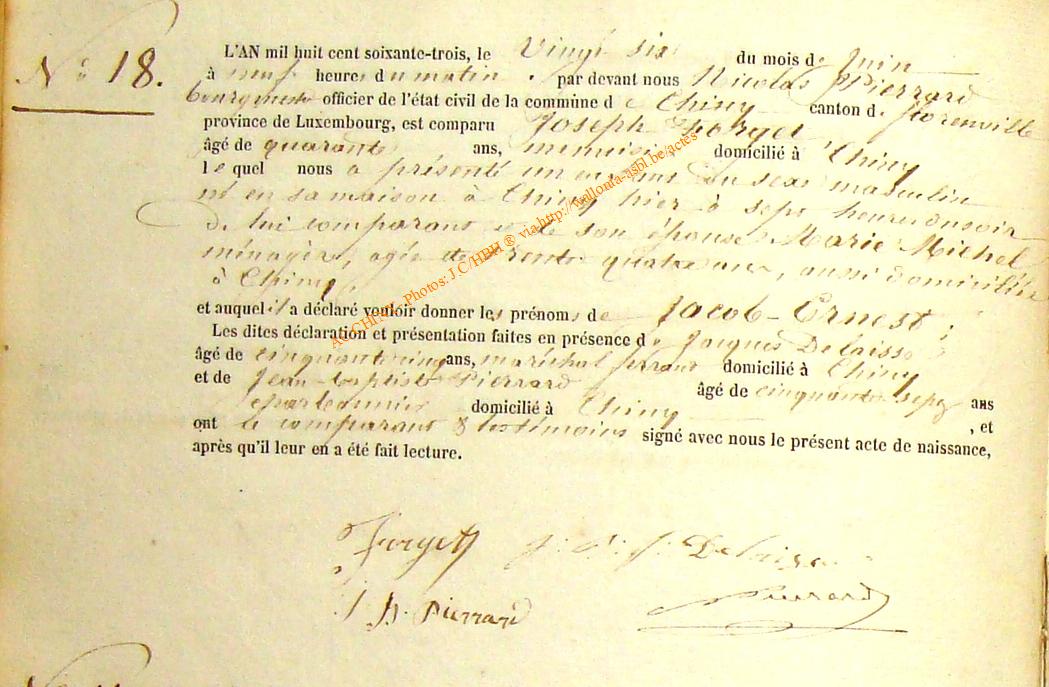 N° 18.
L'AN mil huit cent soixante-trois, le Vingt six du mois de Juin
à neuf heures du matin par devant nous Nicolas Pierrard
bourgmestre officier de l'état civil de la commune de Chiny canton de Florenville
province de Luxembourg, est comparu Joseph Forget
âgé de quarante ans, menuisier domicilié à Chiny
lequel nous a présenté un enfant du sexe masculin
né en sa maison à Chiny hier à sept heures du soir
de lui comparant et de son épouse Marie Michel
ménagère, agée de trente quatre ans, aussi domiciliée
à Chiny,
et auquel il a déclaré vouloir donner les prénoms de Jacob-Ernest;
Les dites déclaration et présentation faites en présence de Jacques Delaisse
âgé de cinquante cinq ans, maréchal ferrant domicilié à Chiny
et de Jean-baptiste Pierrard âgé de cinquante sept ans
charbonnier domicilié à Chiny , et
ont le comparant & les témoins signé avec nous le présent acte de naissance,
après qu'il leur en a été fait lecture.
Forget J. Delaisse
J B Pierrard Pierrard
Photos: J.C/HBH ® via http://wallonia-asbl.be/actes